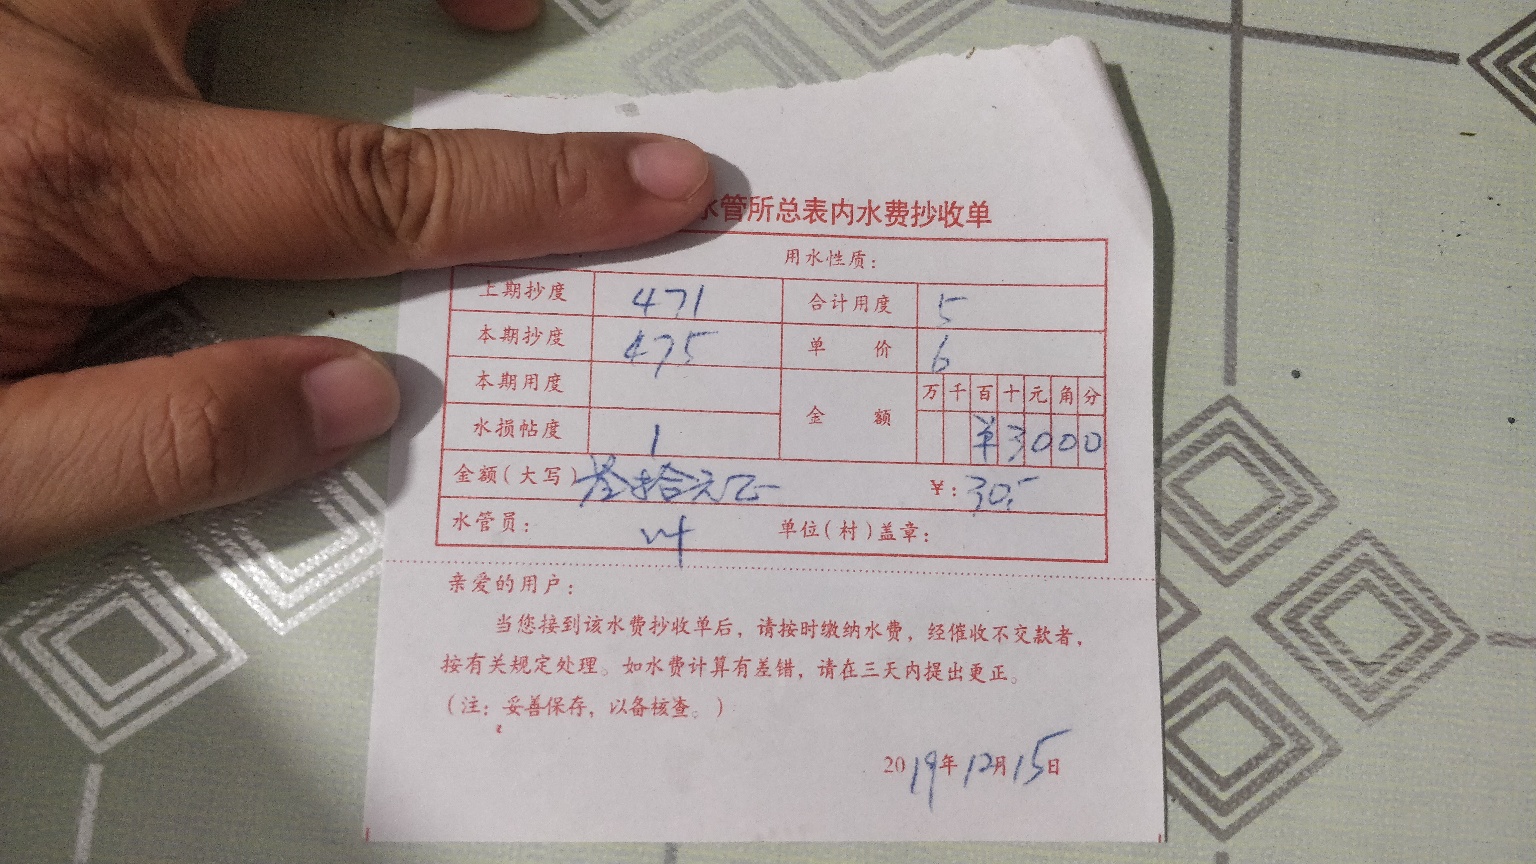 水管所总表内水费抄收单
用水性质：
上期抄度 471 合计用度 5
本期抄度 475 单价 6
本期用度 金额 万 千 百 十 元 角 分
水损帖度 1 ¥ 3 0 0 0
金额(大写) 叁拾元正 ¥: 30.-
水管员： 叶 单位(村)盖章：
亲爱的用户：
当您接到该水费抄收单后，请按时缴纳水费，经催收不交款者，
按有关规定处理。如水费计算有差错，请在三天内提出更正。
(注：妥善保存，以备核查。)
2019年12月15日